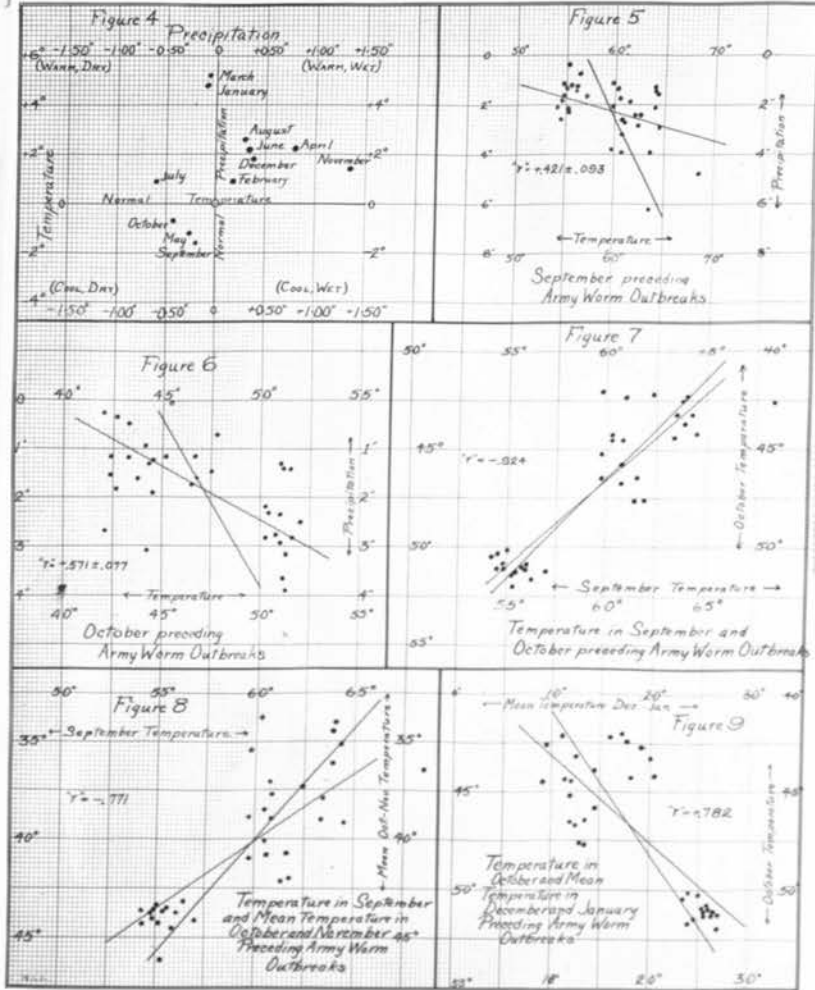 Figure 4
Precipitation
-1.50" -1.00" -0.50" 0 +0.50" +1.00" +1.50"
+6°
(WARM, DRY)
(WARM, WET)
March
January
+4°
August
June
April
+2°
+2°
December
November
July
February
Normal Temperature
0
Normal Precipitation
Temperature
October
May
September
-2°
-2°
-4°
(COOL, DRY)
(COOL, WET)
-1.50" -1.00" -0.50" 0 +0.50" +1.00" +1.50"
Figure 5
50° 60° 70°
0 0
2" 2"
4" 4"
6" 6"
8"
"r"=+.421±.093
←Precipitation→
←Temperature→
50° 60° 70°
September preceding
Army Worm Outbreaks
Figure 6
40° 45° 50° 55°
0 0
1" 1"
2" 2"
3" 3"
4" 4"
←Precipitation→
"r"=+.571±.077
←Temperature→
40° 45° 50° 55°
October preceding
Army Worm Outbreaks
Figure 7
50° 55° 60° 40°
45° 45°
"r"=-.824
←October Temperature→
50° 50°
← September Temperature →
55° 60° 65°
55°
Temperature in September and
October preceding Army Worm Outbreaks
Figure 8
50° 55° 60° 65°
←September Temperature→
35° 35°
"r"=-.771
←Mean Oct-Nov Temperature→
40° 40°
Temperature in September
and Mean Temperature in
October and November
Preceding Army Worm
Outbreaks
45° 45°
Figure 9
10° 20° 30° 40°
←Mean Temperature Dec-Jan→
45° 45°
"r"=+.782
←October Temperature→
Temperature in
October and Mean
Temperature in
December and January
Preceding Army Worm
Outbreaks
50° 50°
55°
20° 30°